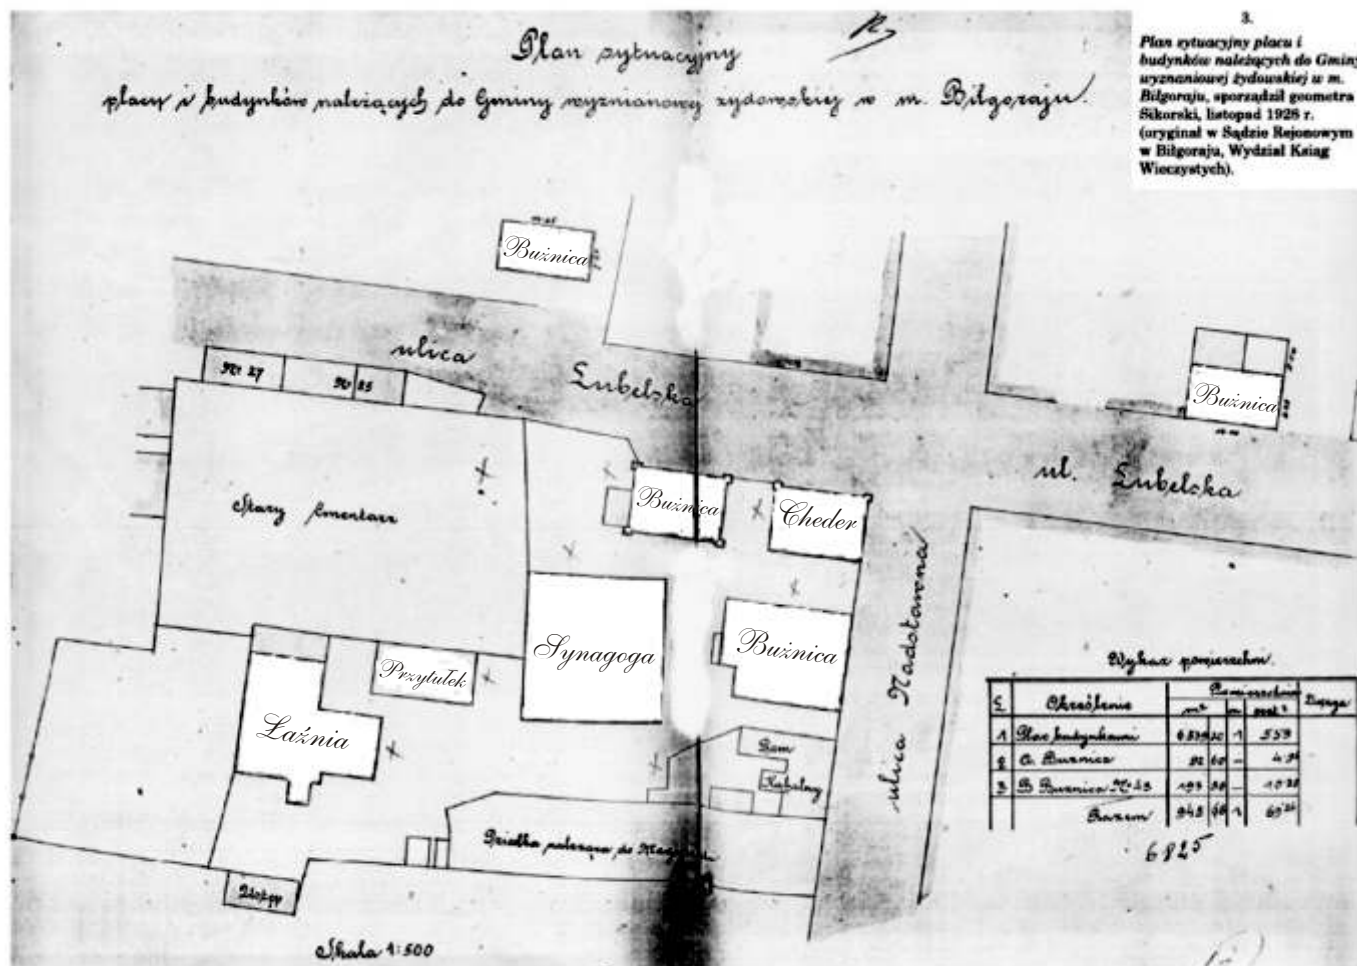 Plan sytuacyjny
placu i budynków należących do Gminy wyznianowej żydowskiej w m. Biłgoraju.
3.
Plan sytuacyjny placu i
budynków należących do Gminy
wyznaniowej żydowskiej w m.
Biłgoraju, sporządził geometra
Sikorski, listopad 1928 r.
(oryginał w Sądzie Rejonowym
w Biłgoraju, Wydział Ksiąg
Wieczystych).
Bużnica
ulica Lubelska
Nr 27
Nr 25
Bużnica
ul. Lubelska
Stary Cmentarz
Bużnica
Cheder
Synagoga
Bużnica
Przytułek
Łaźnia
ulica Nadstawna
Dom
Kahalny
Działka należąca do
Skala 1:500
Wykaz powierzchni.
Określenie
m²
1 Plac budynkami 1 559
2 Bużnica
3 B Bużnica
Razem
6825